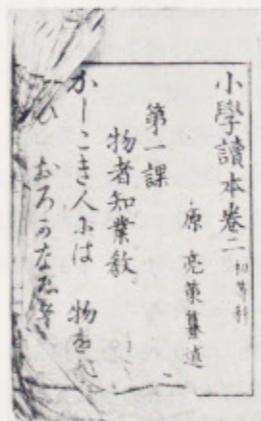 小學讀本卷二 初等科
原亮策纂述
第一課
物者知業教。
かしこき人には 物を
おろかなる